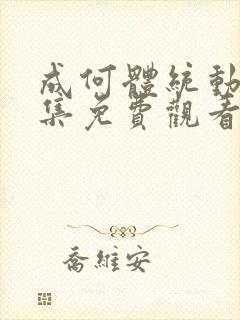 成何體統動
集免費觀看
喬維安